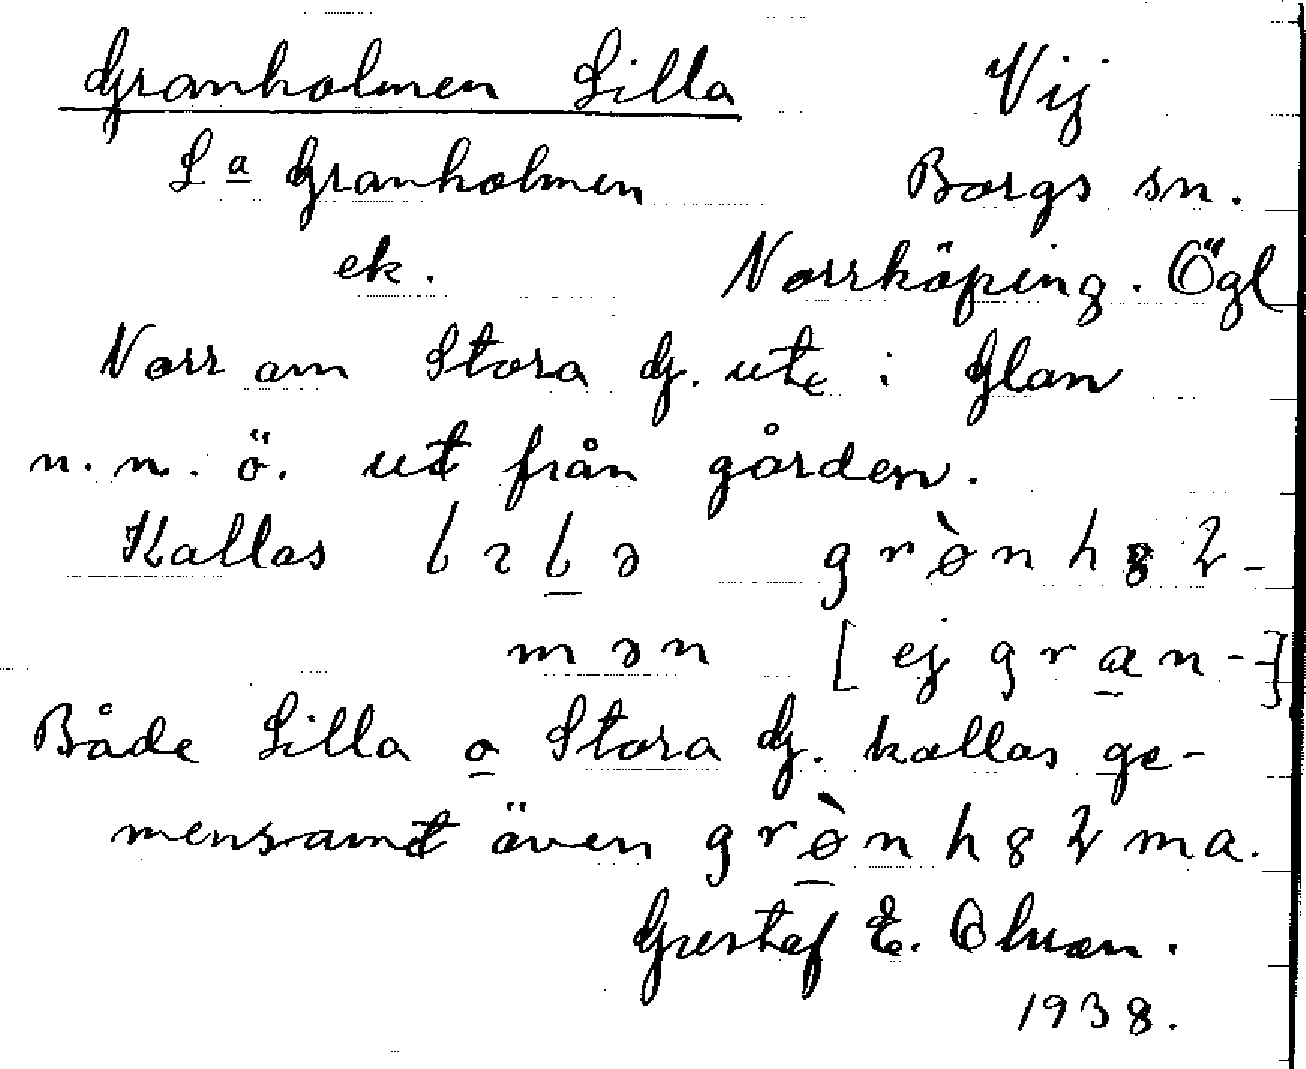 Granholmen Lilla Vij
L a Granholmen Borgs sn.
ek. Norrköping. Ögl
Norr om Stora G. ute i Glan
n. n. ö. ut från gården.
Kallas
mən [ej gran--]
Både Lilla o Stora G. kallas ge-
mensamt även
Gustaf E. Olsson.
1938.